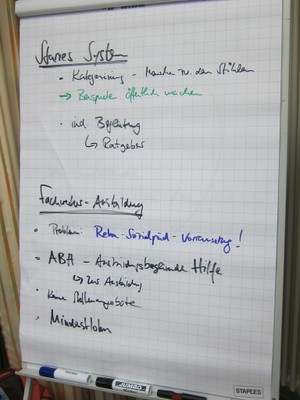 Starres System
• Kategorisierung - Mensch zw. den Stühlen
→ Beispiele öffentlich machen
• ind. Begleitung
↳ Ratgeber
Ausbildung
• Problem: Reha - Sozialpäd - Voraussetzung!
• ABH - Ausbildungsbegleitende Hilfe
↔ zur Ausbildung
• Keine Stellenangebote
• Mindestlohn
JUMBO
STAPLES